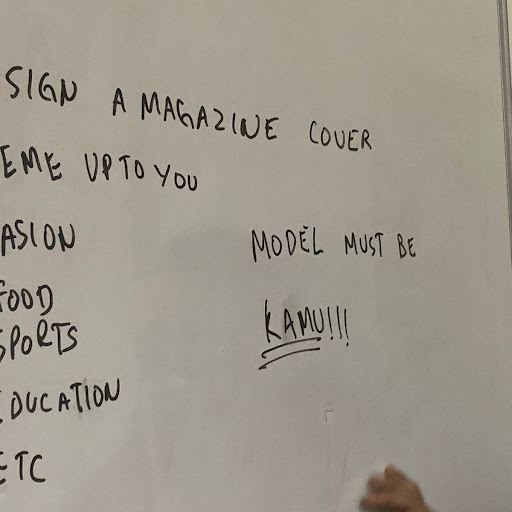 SIGN A MAGAZINE COVER
EME UP TO YOU
ASION
FOOD
SPORTS
EDUCATION
ETC
MODEL MUST BE
KAMU!!!